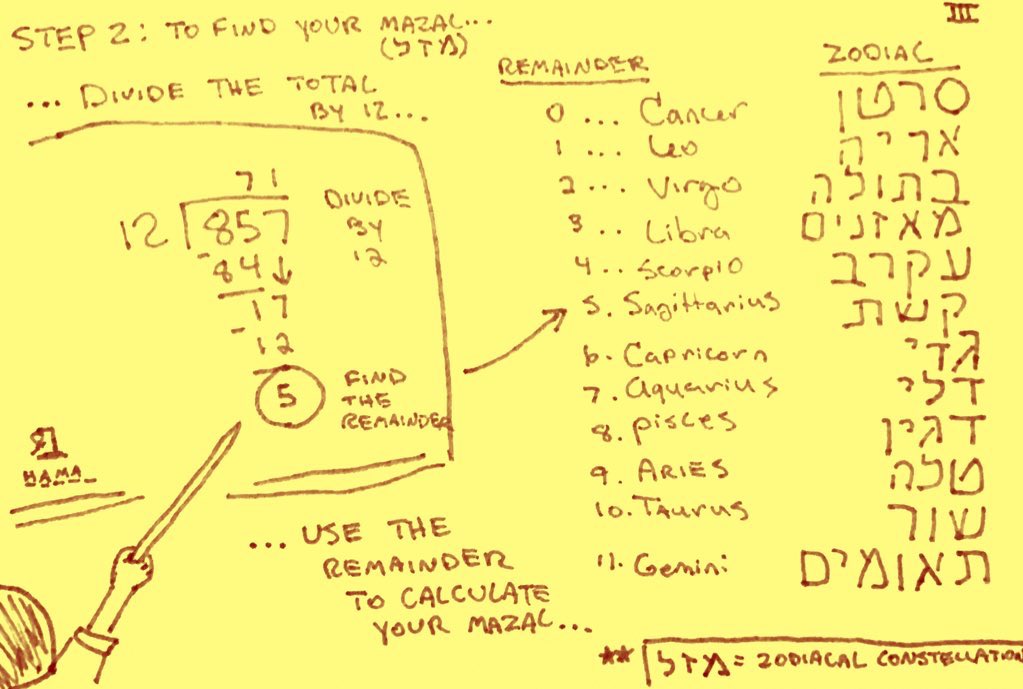 III
STEP 2: TO FIND YOUR MAZAL...
(מזל)
... DIVIDE THE TOTAL
BY 12...
71
12 857
-84↓
17
-12
5
DIVIDE
BY
12
FIND
THE
REMAINDER
HAMA
... USE THE
REMAINDER
TO CALCULATE
YOUR MAZAL...
REMAINDER ZODIAC
0 ... Cancer סרטן
1 ... Leo אריה
2 ... Virgo בתולה
3 .. Libra מאזנים
4 .. Scorpio עקרב
5. Sagittarius קשת
6. Capricorn גדי
7. Aquarius דלי
8. Pisces דגין
9. ARIES טלה
10. Taurus שור
11. Gemini תאומים
** מזל = ZODIACAL CONSTELLATION